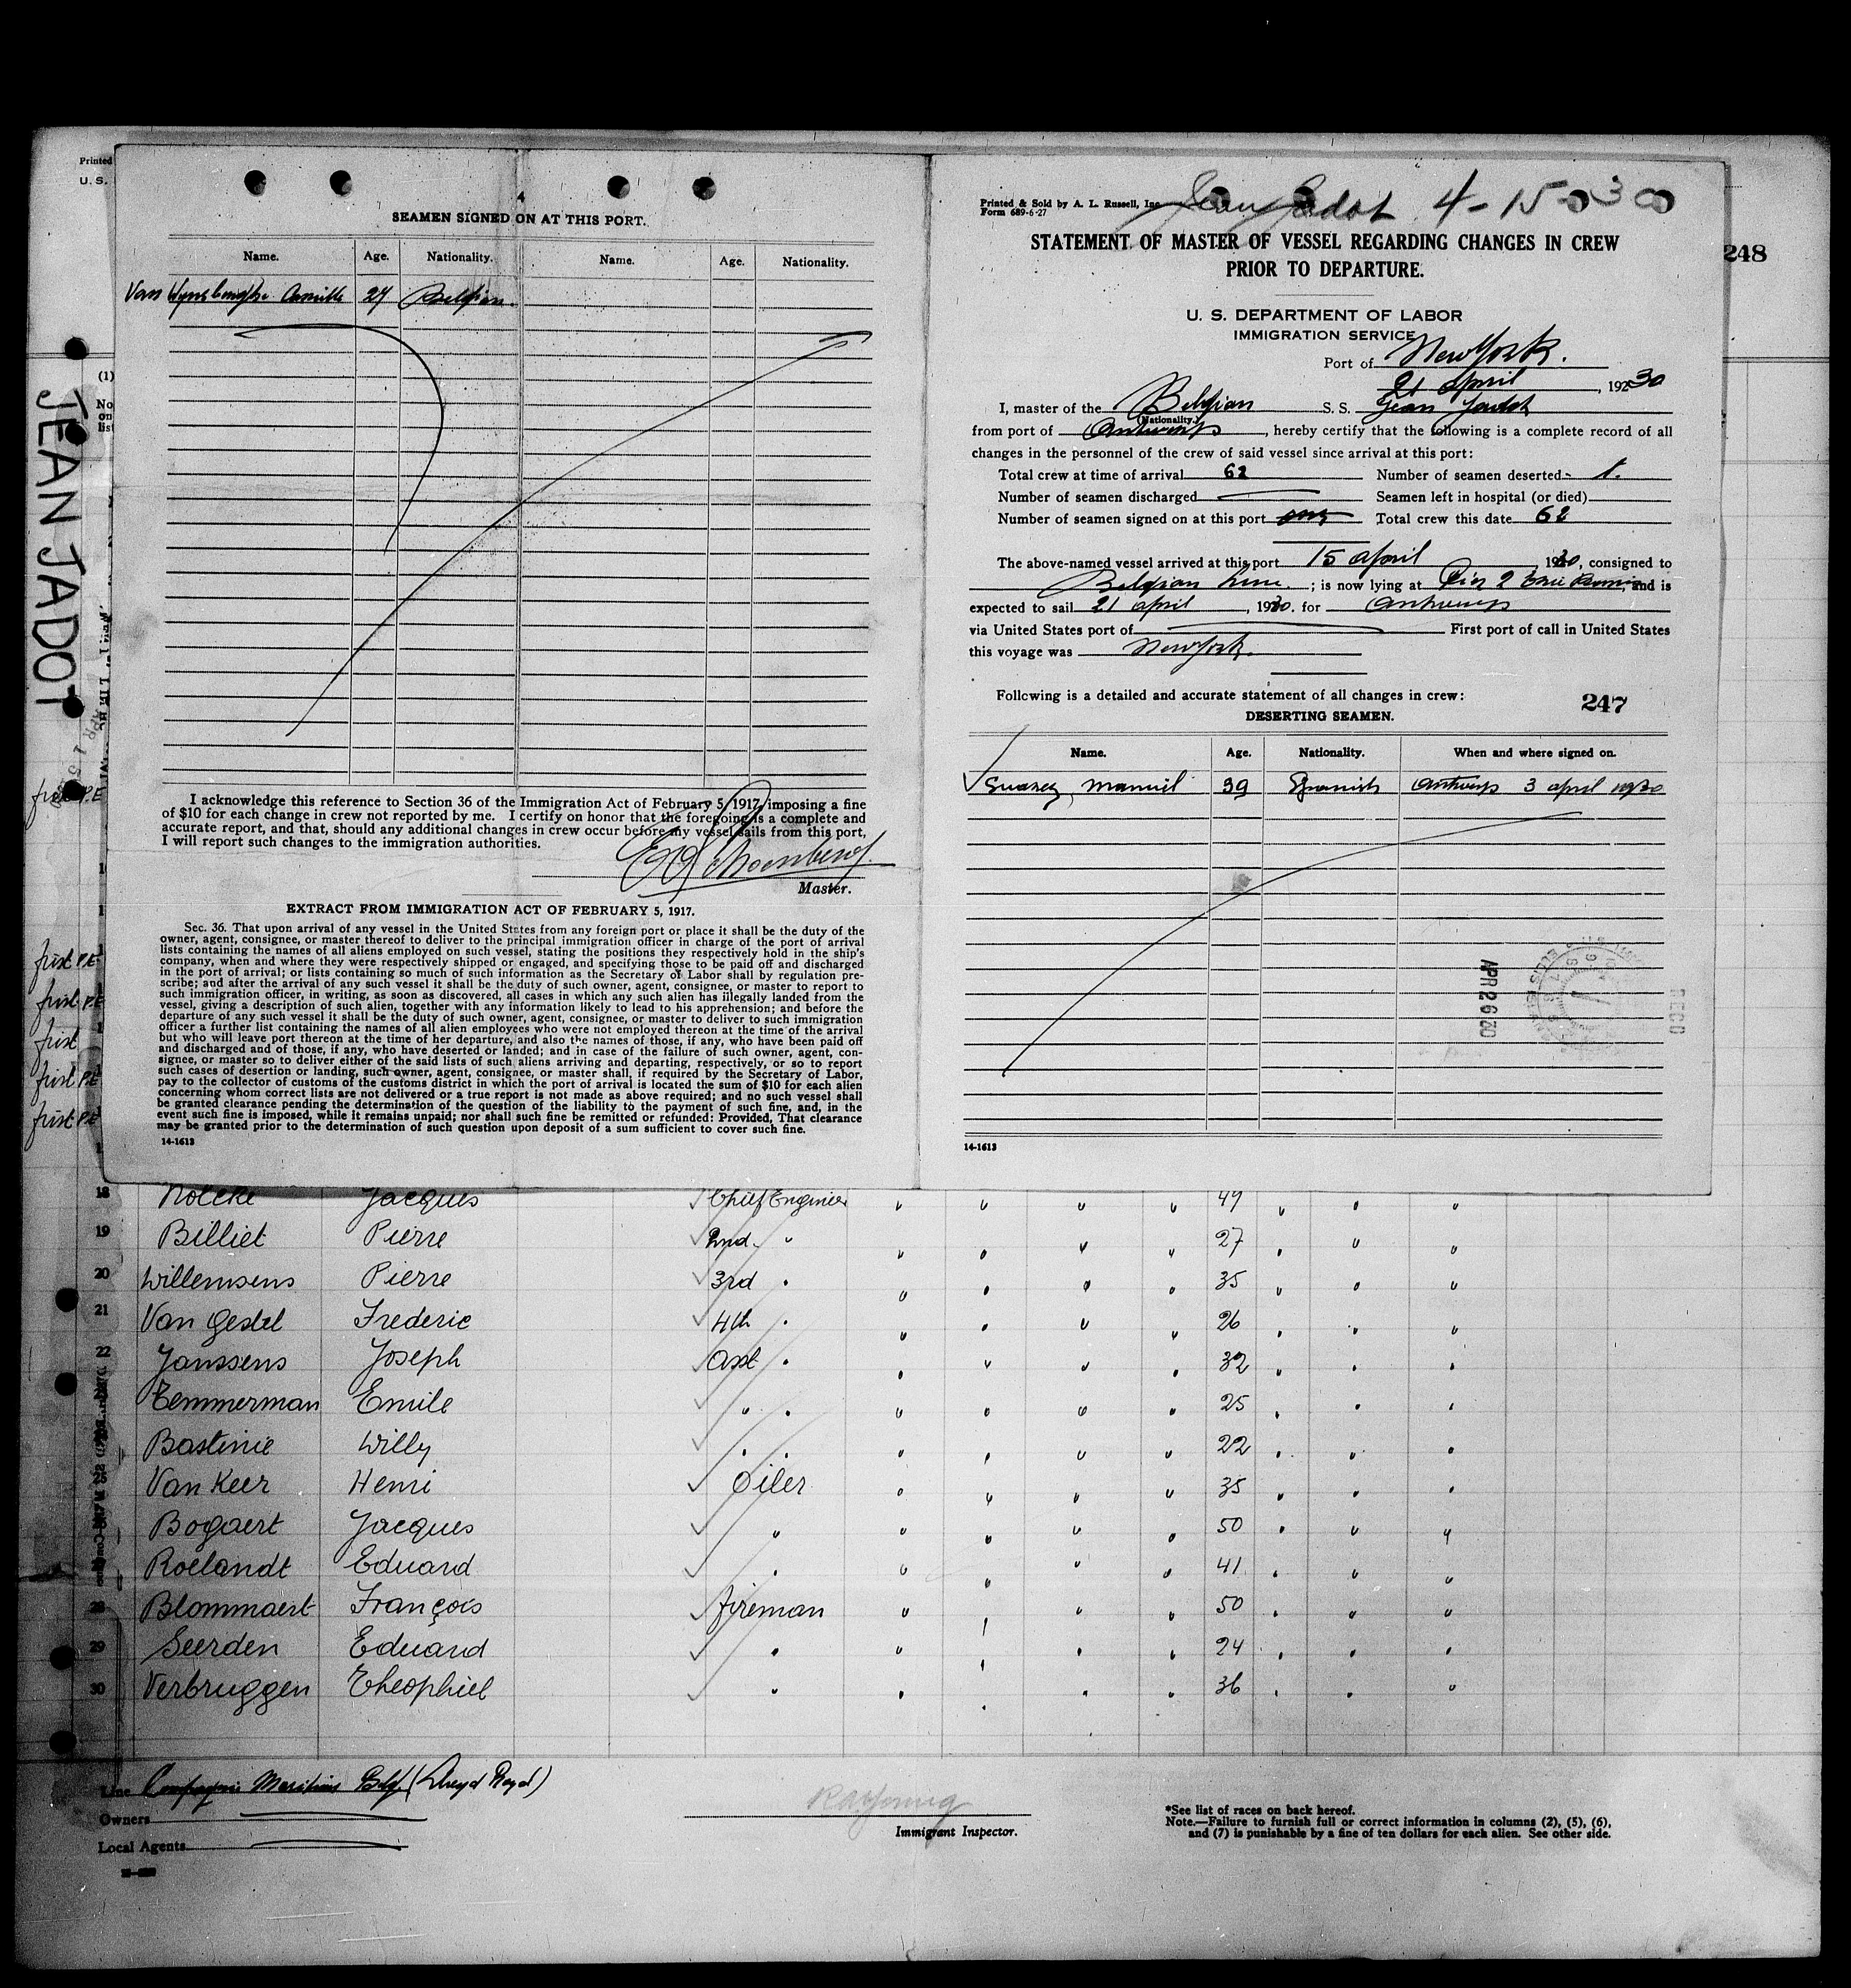 Printed
U. S.
JEAN JADOT
4
SEAMEN SIGNED ON AT THIS PORT.
Name. Age. Nationality. Name. Age. Nationality.
Van Camille 27 Belgian
I acknowledge this reference to Section 36 of the Immigration Act of February 5, 1917, imposing a fine
of $10 for each change in crew not reported by me. I certify on honor that the foregoing is a complete and
accurate report, and that, should any additional changes in crew occur before my vessel sails from this port,
I will report such changes to the immigration authorities.
Master.
EXTRACT FROM IMMIGRATION ACT OF FEBRUARY 5, 1917.
Sec. 36. That upon arrival of any vessel in the United States from any foreign port or place it shall be the duty of the
owner, agent, consignee, or master thereof to deliver to the principal immigration officer in charge of the port of arrival
lists containing the names of all aliens employed on such vessel, stating the positions they respectively hold in the ship's
company, when and where they were respectively shipped or engaged, and specifying those to be paid off and discharged
in the port of arrival; or lists containing so much of such information as the Secretary of Labor shall by regulation pre-
scribe; and after the arrival of any such vessel it shall be the duty of such owner, agent, consignee, or master to report to
such immigration officer, in writing, as soon as discovered, all cases in which any such alien has illegally landed from the
vessel, giving a description of such alien, together with any information likely to lead to his apprehension; and before the
departure of any such vessel it shall be the duty of such owner, agent, consignee, or master to deliver to such immigration
officer a further list containing the names of all alien employees who were not employed thereon at the time of the arrival
but who will leave port thereon at the time of her departure, and also the names of those, if any, who have been paid off
and discharged and of those, if any, who have deserted or landed; and in case of the failure of such owner, agent, con-
signee, or master so to deliver either of the said lists of such aliens arriving and departing, respectively, or so to report
such cases of desertion or landing, such owner, agent, consignee, or master shall, if required by the Secretary of Labor,
pay to the collector of customs of the customs district in which the port of arrival is located the sum of $10 for each alien
concerning whom correct lists are not delivered or a true report is not made as above required; and no such vessel shall
be granted clearance pending the determination of the question of the liability to the payment of such fine, and, in the
event such fine is imposed, while it remains unpaid; nor shall such fine be remitted or refunded: Provided, That clearance
may be granted prior to the determination of such question upon deposit of a sum sufficient to cover such fine.
14-1613
Jean Jadot 4-15-30
Printed & Sold by A. L. Russell, Inc.
Form 689-6-27
STATEMENT OF MASTER OF VESSEL REGARDING CHANGES IN CREW
PRIOR TO DEPARTURE.
248
U. S. DEPARTMENT OF LABOR
IMMIGRATION SERVICE
Port of New York.
21 April, 1930
I, master of the Belgian S. S. Jean Jadot
(Nationality.)
from port of Antwerp, hereby certify that the following is a complete record of all
changes in the personnel of the crew of said vessel since arrival at this port:
Total crew at time of arrival 62 Number of seamen deserted 1.
Number of seamen discharged Seamen left in hospital (or died)
Number of seamen signed on at this port one Total crew this date 62
The above-named vessel arrived at this port 15 April, 1930, consigned to
Belgian Line; is now lying at Pier 2 Erie Basin, and is
expected to sail 21 April, 1930. for Antwerp
via United States port of First port of call in United States
this voyage was New York.
Following is a detailed and accurate statement of all changes in crew:
247
DESERTING SEAMEN.
Name. Age. Nationality. When and where signed on.
Suarez Manuel 39 Spanish Antwerp 3 April 1930
APR 26 30
14-1613
first P.E
first P.E
first P.E
first
first P.E
first P.E
18 Jacques Chief Engineer " " " " 49 " " "
19 Billiet Pierre 2nd " " " " " 27 " " "
20 Willemsens Pierre 3rd " " " " " 35 " " "
21 Van Gestel Frederic 4th " " " " " 26 " " "
22 Janssens Joseph Asst " " " " " 32 " " "
Temmerman Emile " " " " " " 25 " " "
Bastinie Willy " " " " " " 22 " " "
Van Keer Henri Oiler " " " " 35 " " "
Bogaert Jacques " " " " " 50 " " "
Roelandt Eduard " " " " " 41 " " "
28 Blommaert François fireman " " " " 50 " " "
29 Seerden Eduard " " " " " 24 " " "
30 Verbruggen Theophiel " " " " " 36 " " "
Line Compagnie Maritime Belge (Lloyd Royal)
Owners
Local Agents
Immigrant Inspector.
*See list of races on back hereof.
Note.—Failure to furnish full or correct information in columns (2), (5), (6),
and (7) is punishable by a fine of ten dollars for each alien. See other side.